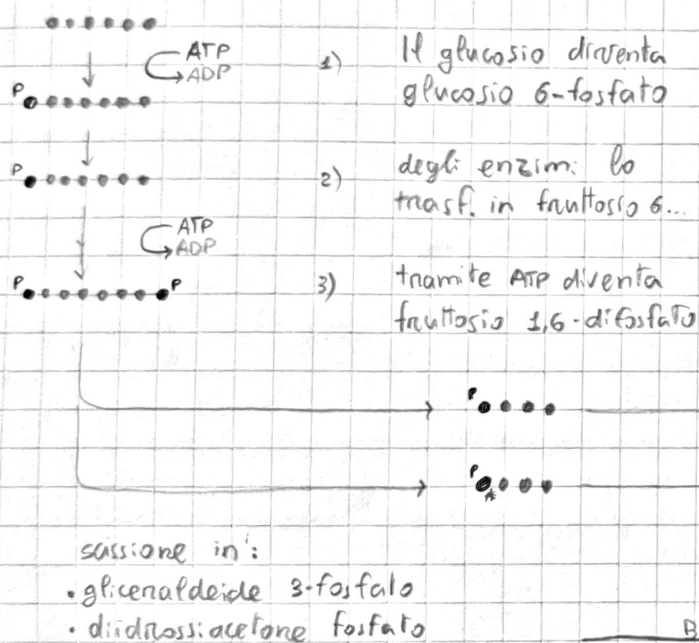 ATP
ADP
1) Il glucosio diventa
glucosio 6-fosfato
P
P
2) degli enzimi lo
trasf. in fruttosio 6...
ATP
ADP
P P
3) tramite ATP diventa
fruttosio 1,6-difosfato
P
P
scissione in:
• gliceraldeide 3-fosfato
• diidrossiacetone fosfato
P